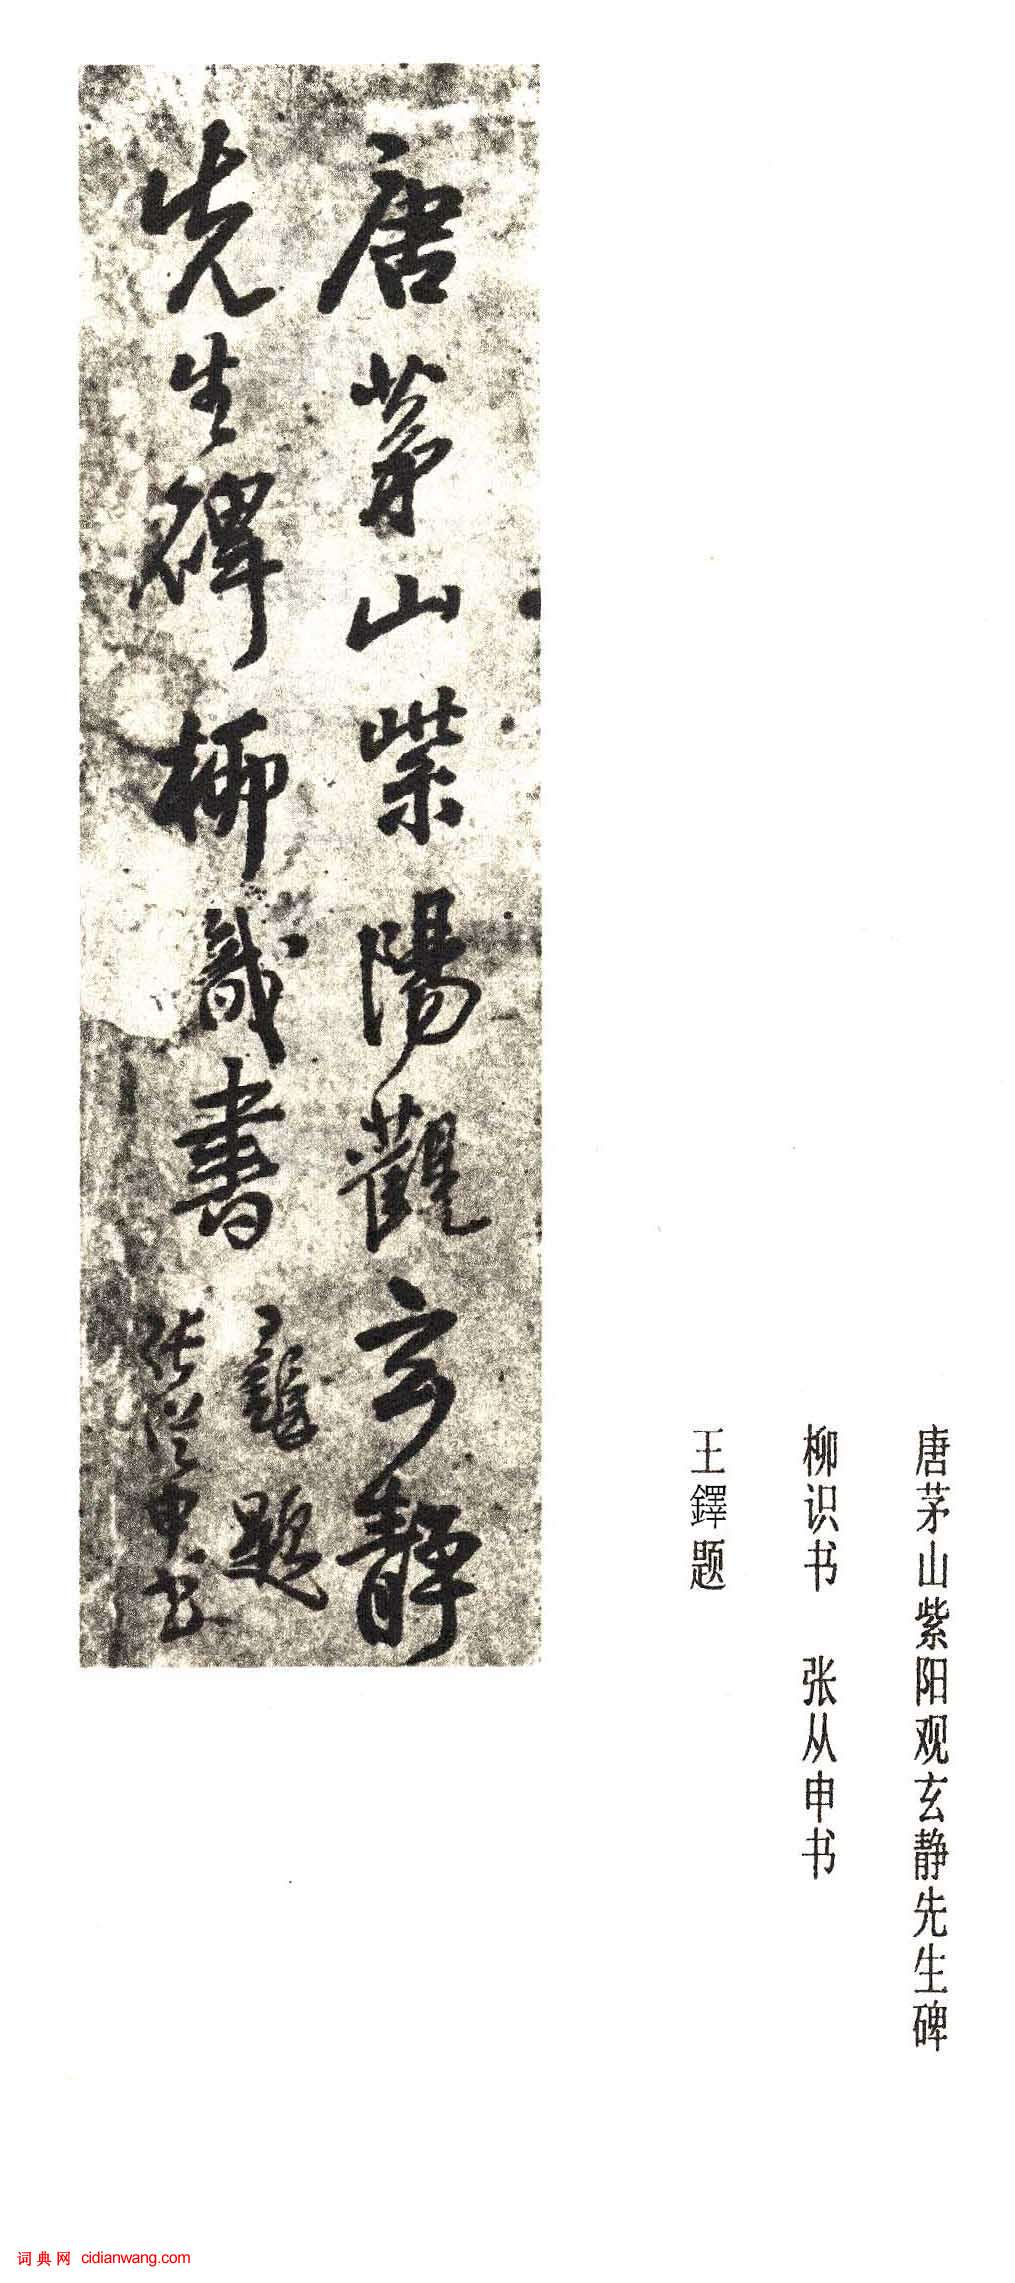 唐茅山紫陽觀玄靜
先生碑柳識書
張從申書
題
唐茅山紫阳观玄静先生碑
柳识书 张从申书
王鐸题
词典网 cidianwang.com